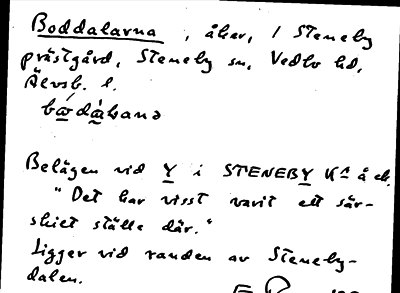 Boddalarna, åker, i Steneby
prästgård, Steneby sn, Vedbo hd,
Älvsb. l.
Belägen vid Y i STENEBY Kª å ek.
"Det har visst varit ett sär-
skiet ställe där."
Ligger vid randen av Steneby-
dalen.